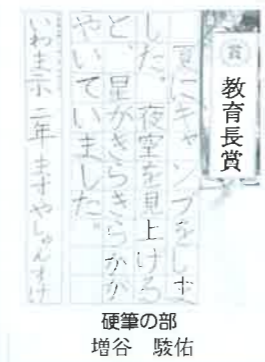 賞
教育長賞
夏にキャンプをしま
した。夜空を見上げる
と、星がきらきらかが
やいていました。
いわま小 二年 ますやしゅんすけ
硬筆の部
増谷 駿佑